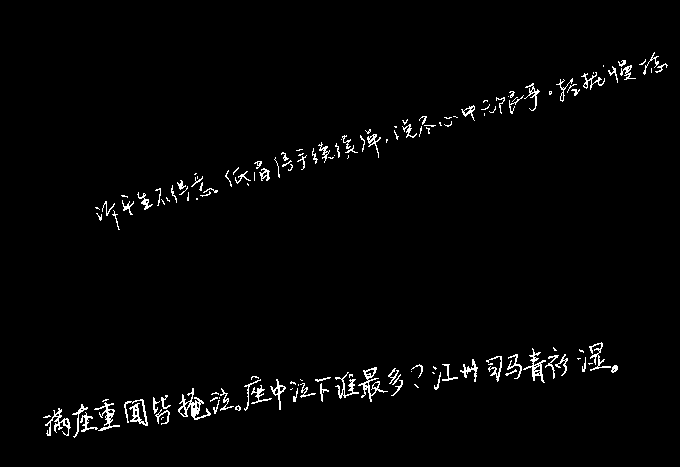 诉平生不得意。低眉信手续续弹,说尽心中无限事。轻拢慢捻
满座重闻皆掩泣。座中泣下谁最多?江州司马青衫湿。